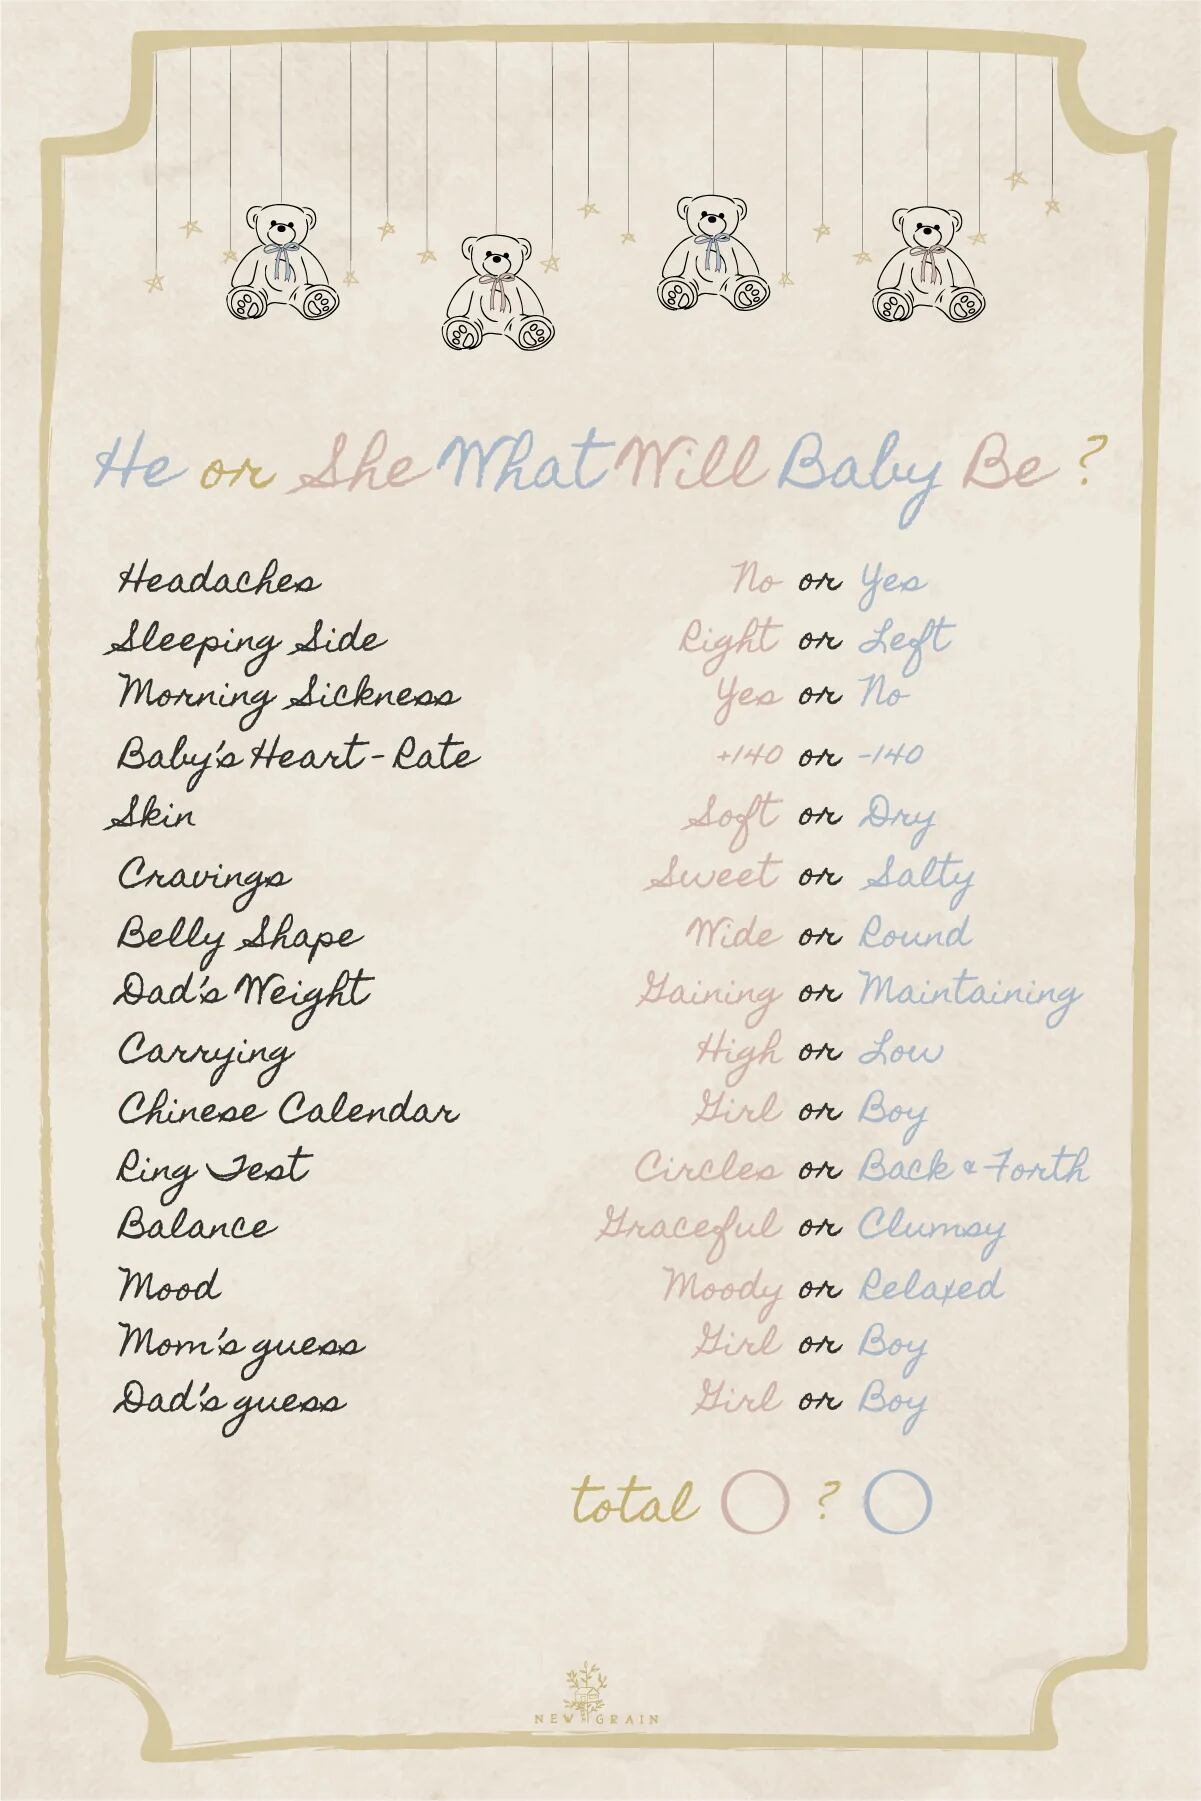 He or She What Will Baby Be ?
Headaches No or Yes
Sleeping Side Right or Left
Morning Sickness Yes or No
Baby's Heart-Rate +140 or -140
Skin Soft or Dry
Cravings Sweet or Salty
Belly Shape Wide or Round
Dad's Weight Gaining or Maintaining
Carrying High or Low
Chinese Calendar Girl or Boy
Ring Test Circles or Back & Forth
Balance Graceful or Clumsy
Mood Moody or Relaxed
Mom's guess Girl or Boy
Dad's guess Girl or Boy
total ?
NEW GRAIN